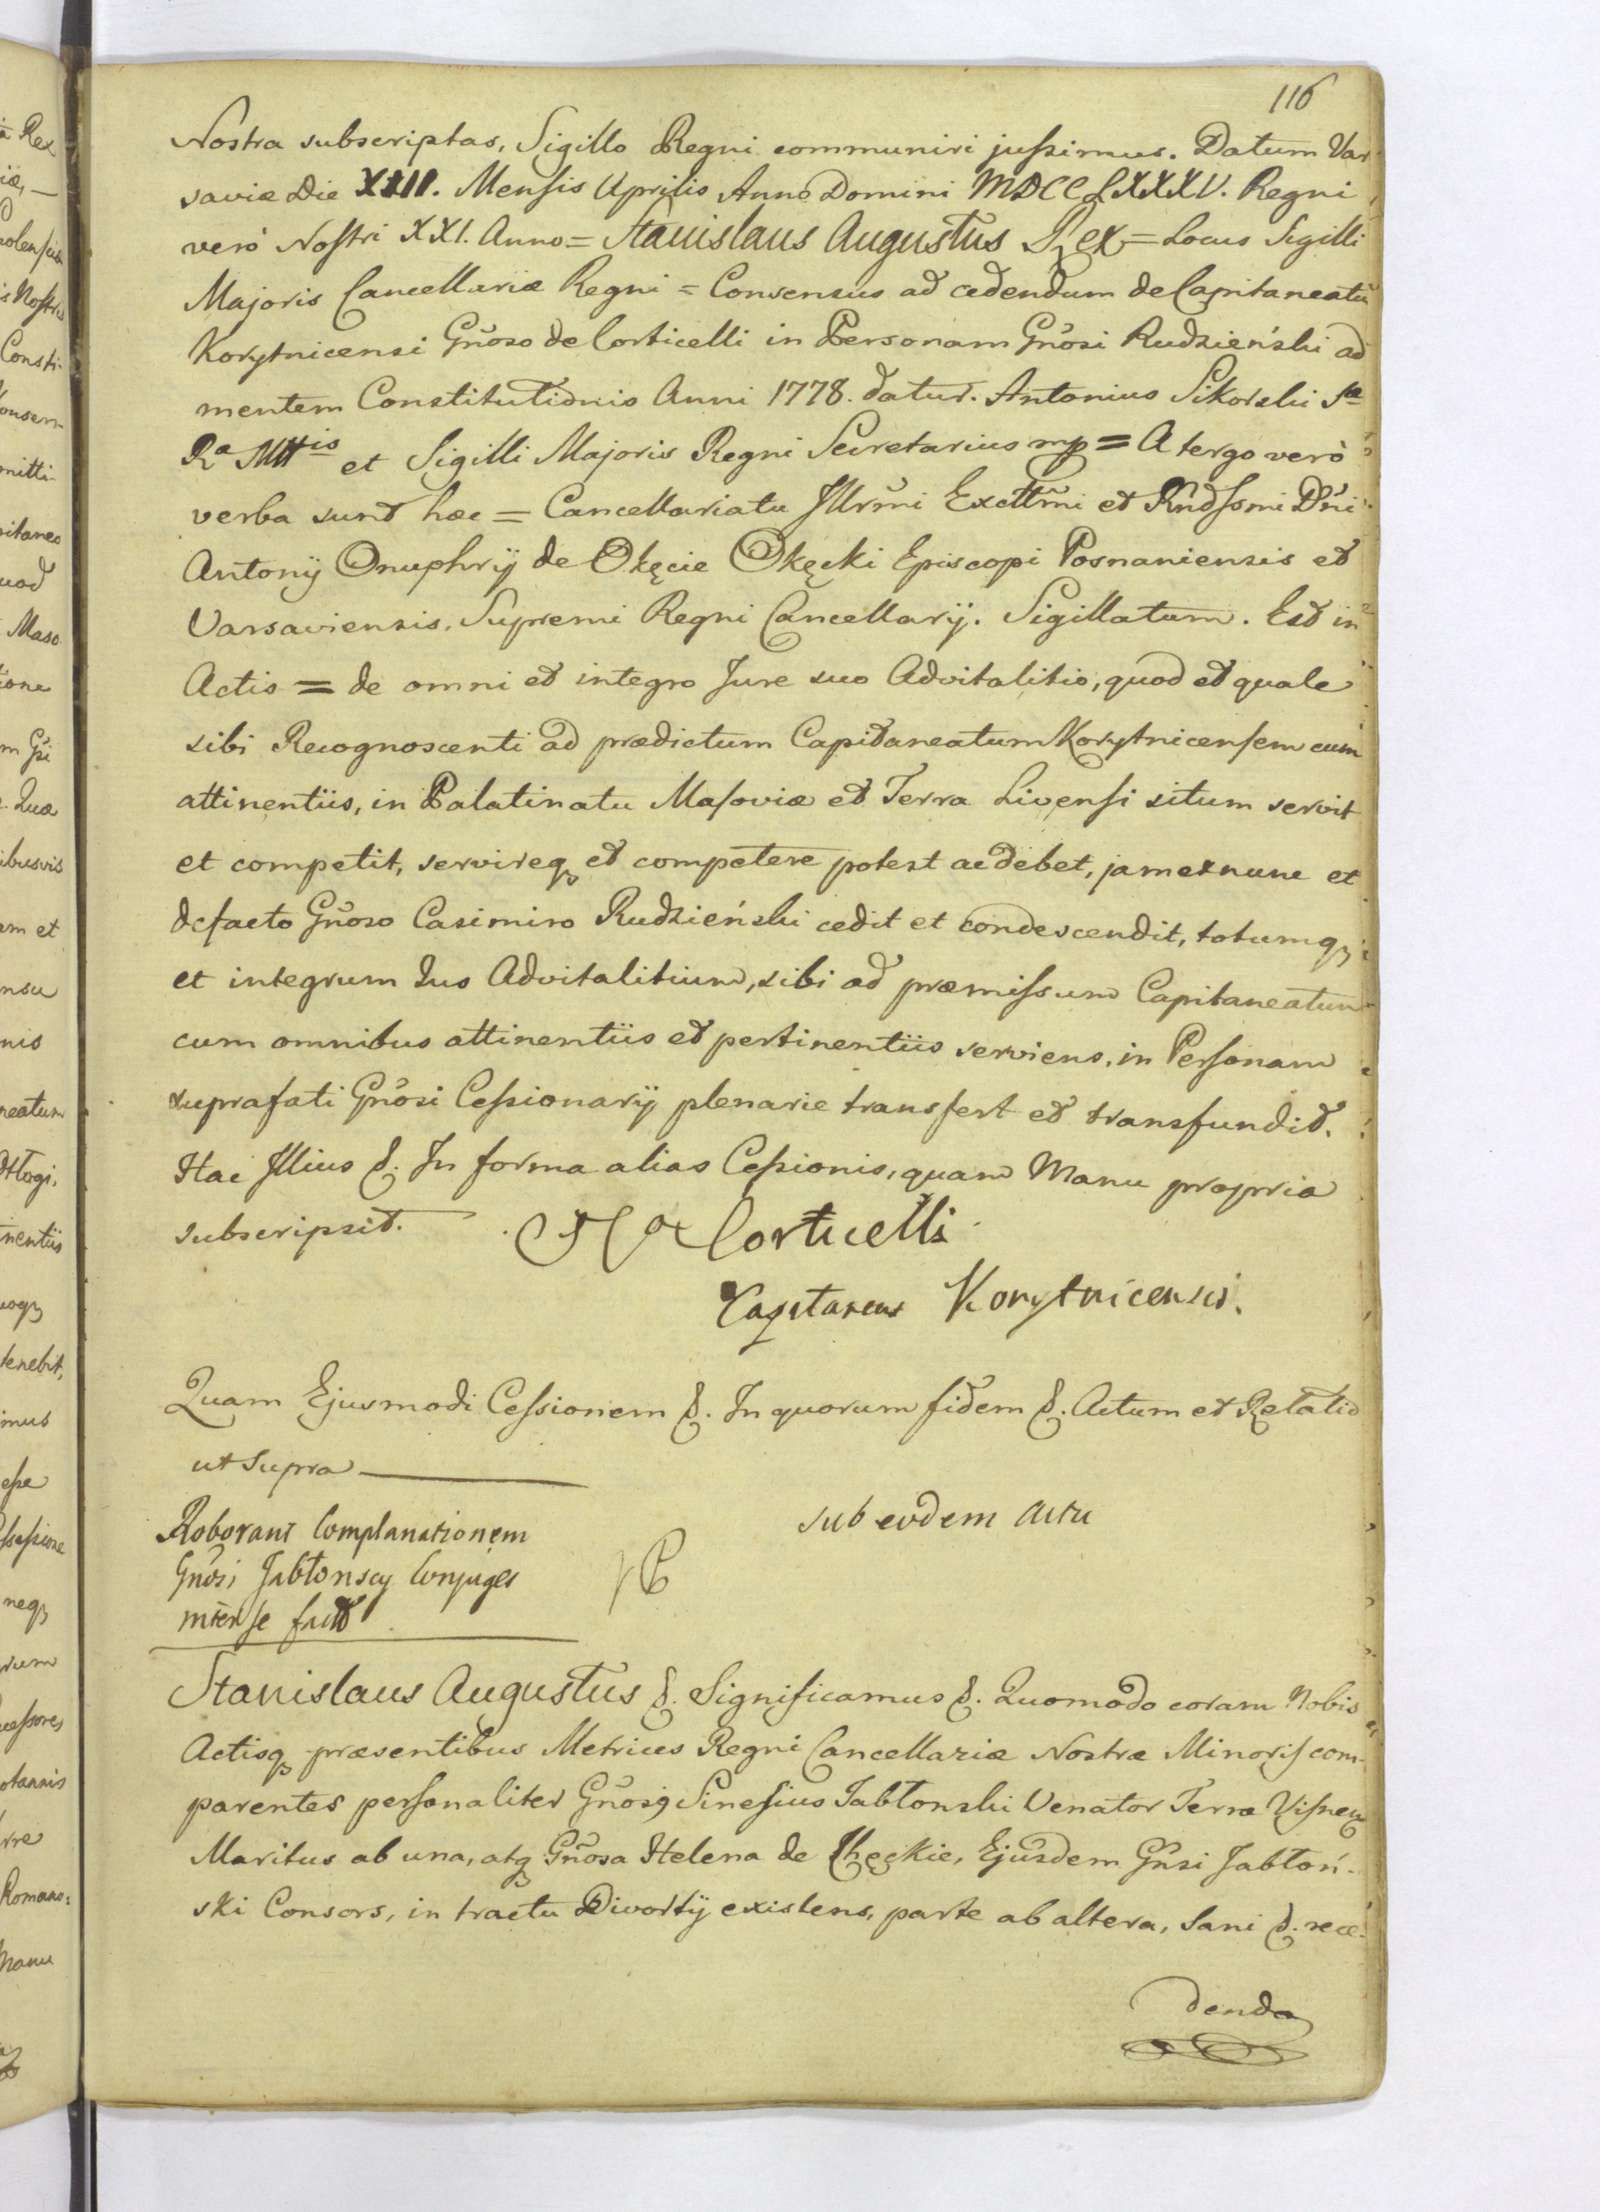 116
Nostra subscriptas, Sigillo Regni communiri jussimus. Datum Var
saviæ Die XIII. Mensis Aprilis Anno Domini MDCCLXXXV. Regni
verò Nostri XXI. Anno = Stanislaus Augustus Rex = Locus Sigilli
Majoris Cancellariæ Regni = Consensus ad cedendum de Capitaneatũ
Korytnicensi Gñoso de Corticelli in Personam Gñosi Rudzieński ad
mentem Constitutionis Anni 1778. datur. Antonius Sikorski Sæ
Ra Mttis et Sigilli Majoris Regni Secretarius mp = A tergo verò
verba sunt hæc = Cancellariatu Jllrm̃i Excttm̃i et Rñdssmi Dñi
Antonij Onuphrij de Okęcie Okęcki Episcopi Posnaniensis et
Varsaviensis, Supremi Regni Cancellarij. Sigillatum. Est in
Actis = de omni et integro Jure suo Advitalitio, quod et quale
sibi Recognoscenti ad prædictum Capitaneatum Korytnicensem cum
attinentiis, in Palatinatu Masoviæ et Terra Livensi situm servit
et competit, servireq et competere potest ac debet, jam ex nunc et
defacto Gñoso Casimiro Rudzieński cedit et condescendit, totumq
et integrum Jus Advitalitium, sibi ad præmissum Capitaneatum
cum omnibus attinentiis et pertinentiis serviens, in Personam
suprafati Gñosi Cessionarij plenarie transfert et transfundit.
Hac Jllius &. In forma alias Cessionis, quam Manu propria
subscripsit. Corticelli
Capitaneus Korytnicensis.
Quam Ejusmodi Cessionem &. In quorum fidem &. Actum et Relatio
ut supra
Roborant Complanationem
Gñosi Jabłonscy Conjuges
interse fact
sub eodem actu
Stanislaus Augustus &. Significamus &. Quomodo coram Nobis
Actisq præsentibus Metrices Regni Cancellariæ Nostræ Minoris com-
parentes personaliter Gñosq Sinesius Jabłonski Venator Terræ Visnen
Maritus ab una, atq Gñosa Helena de Chęckie, Ejusdem Gñsi Jabłoń-
ski Consors, in tractu Divortij existens, parte ab altera, Sani &. rece-
denda